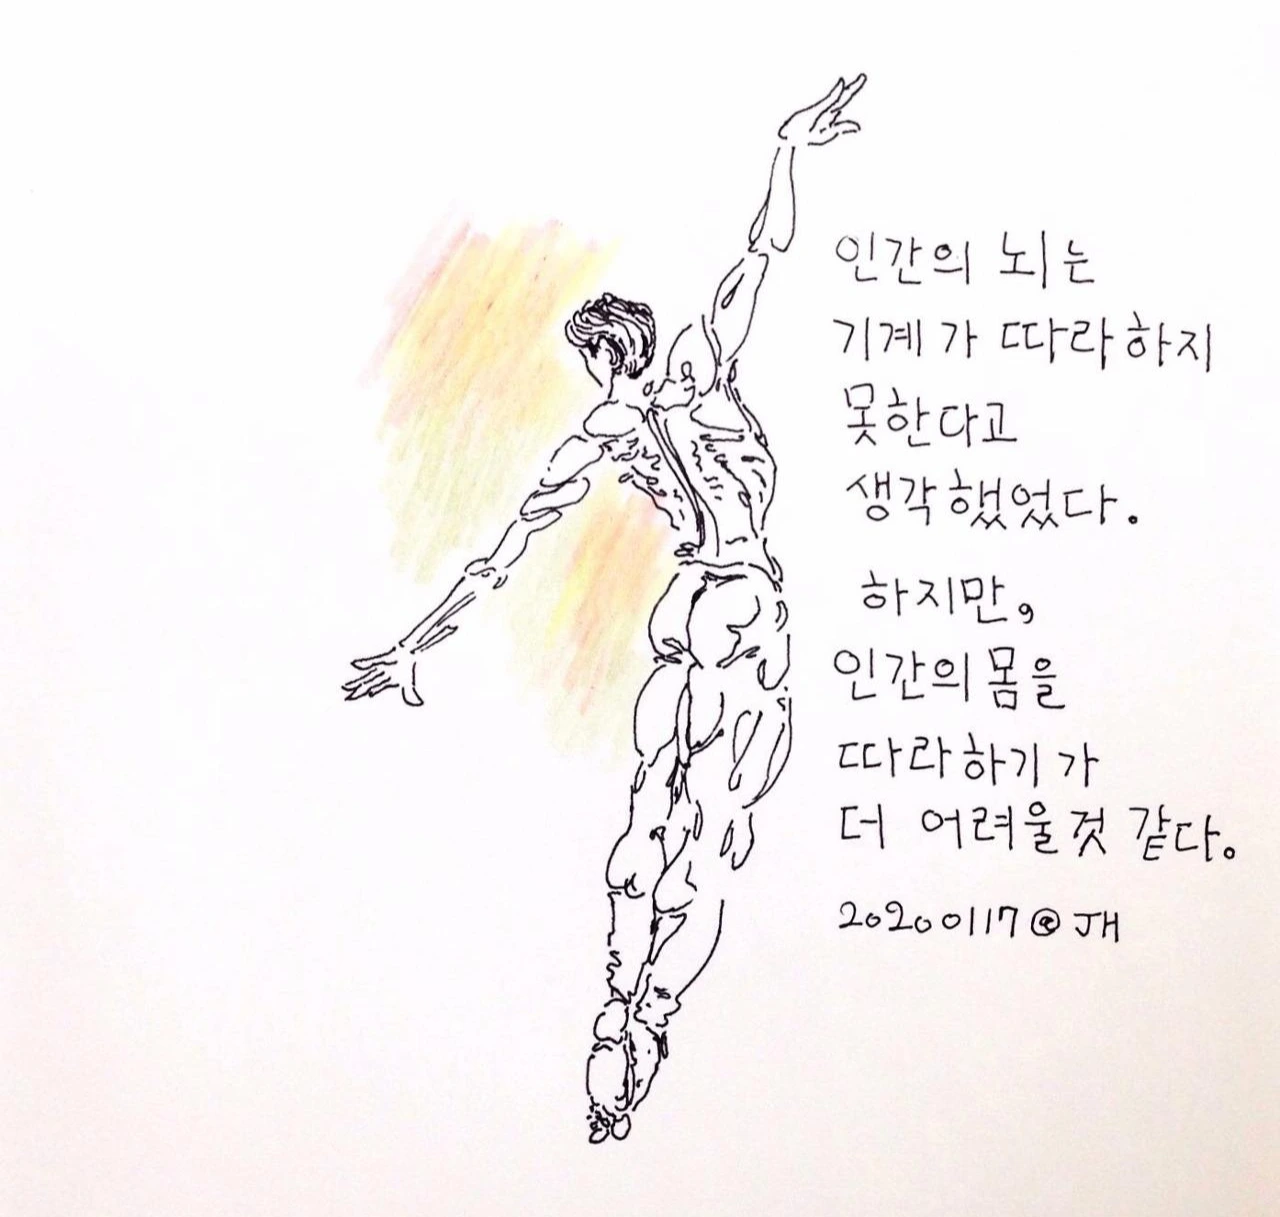 인간의 뇌는
기계가 따라하지
못한다고
생각했었다.
하지만,
인간의 몸을
따라하기가
더 어려울것 같다.
20200117@JH